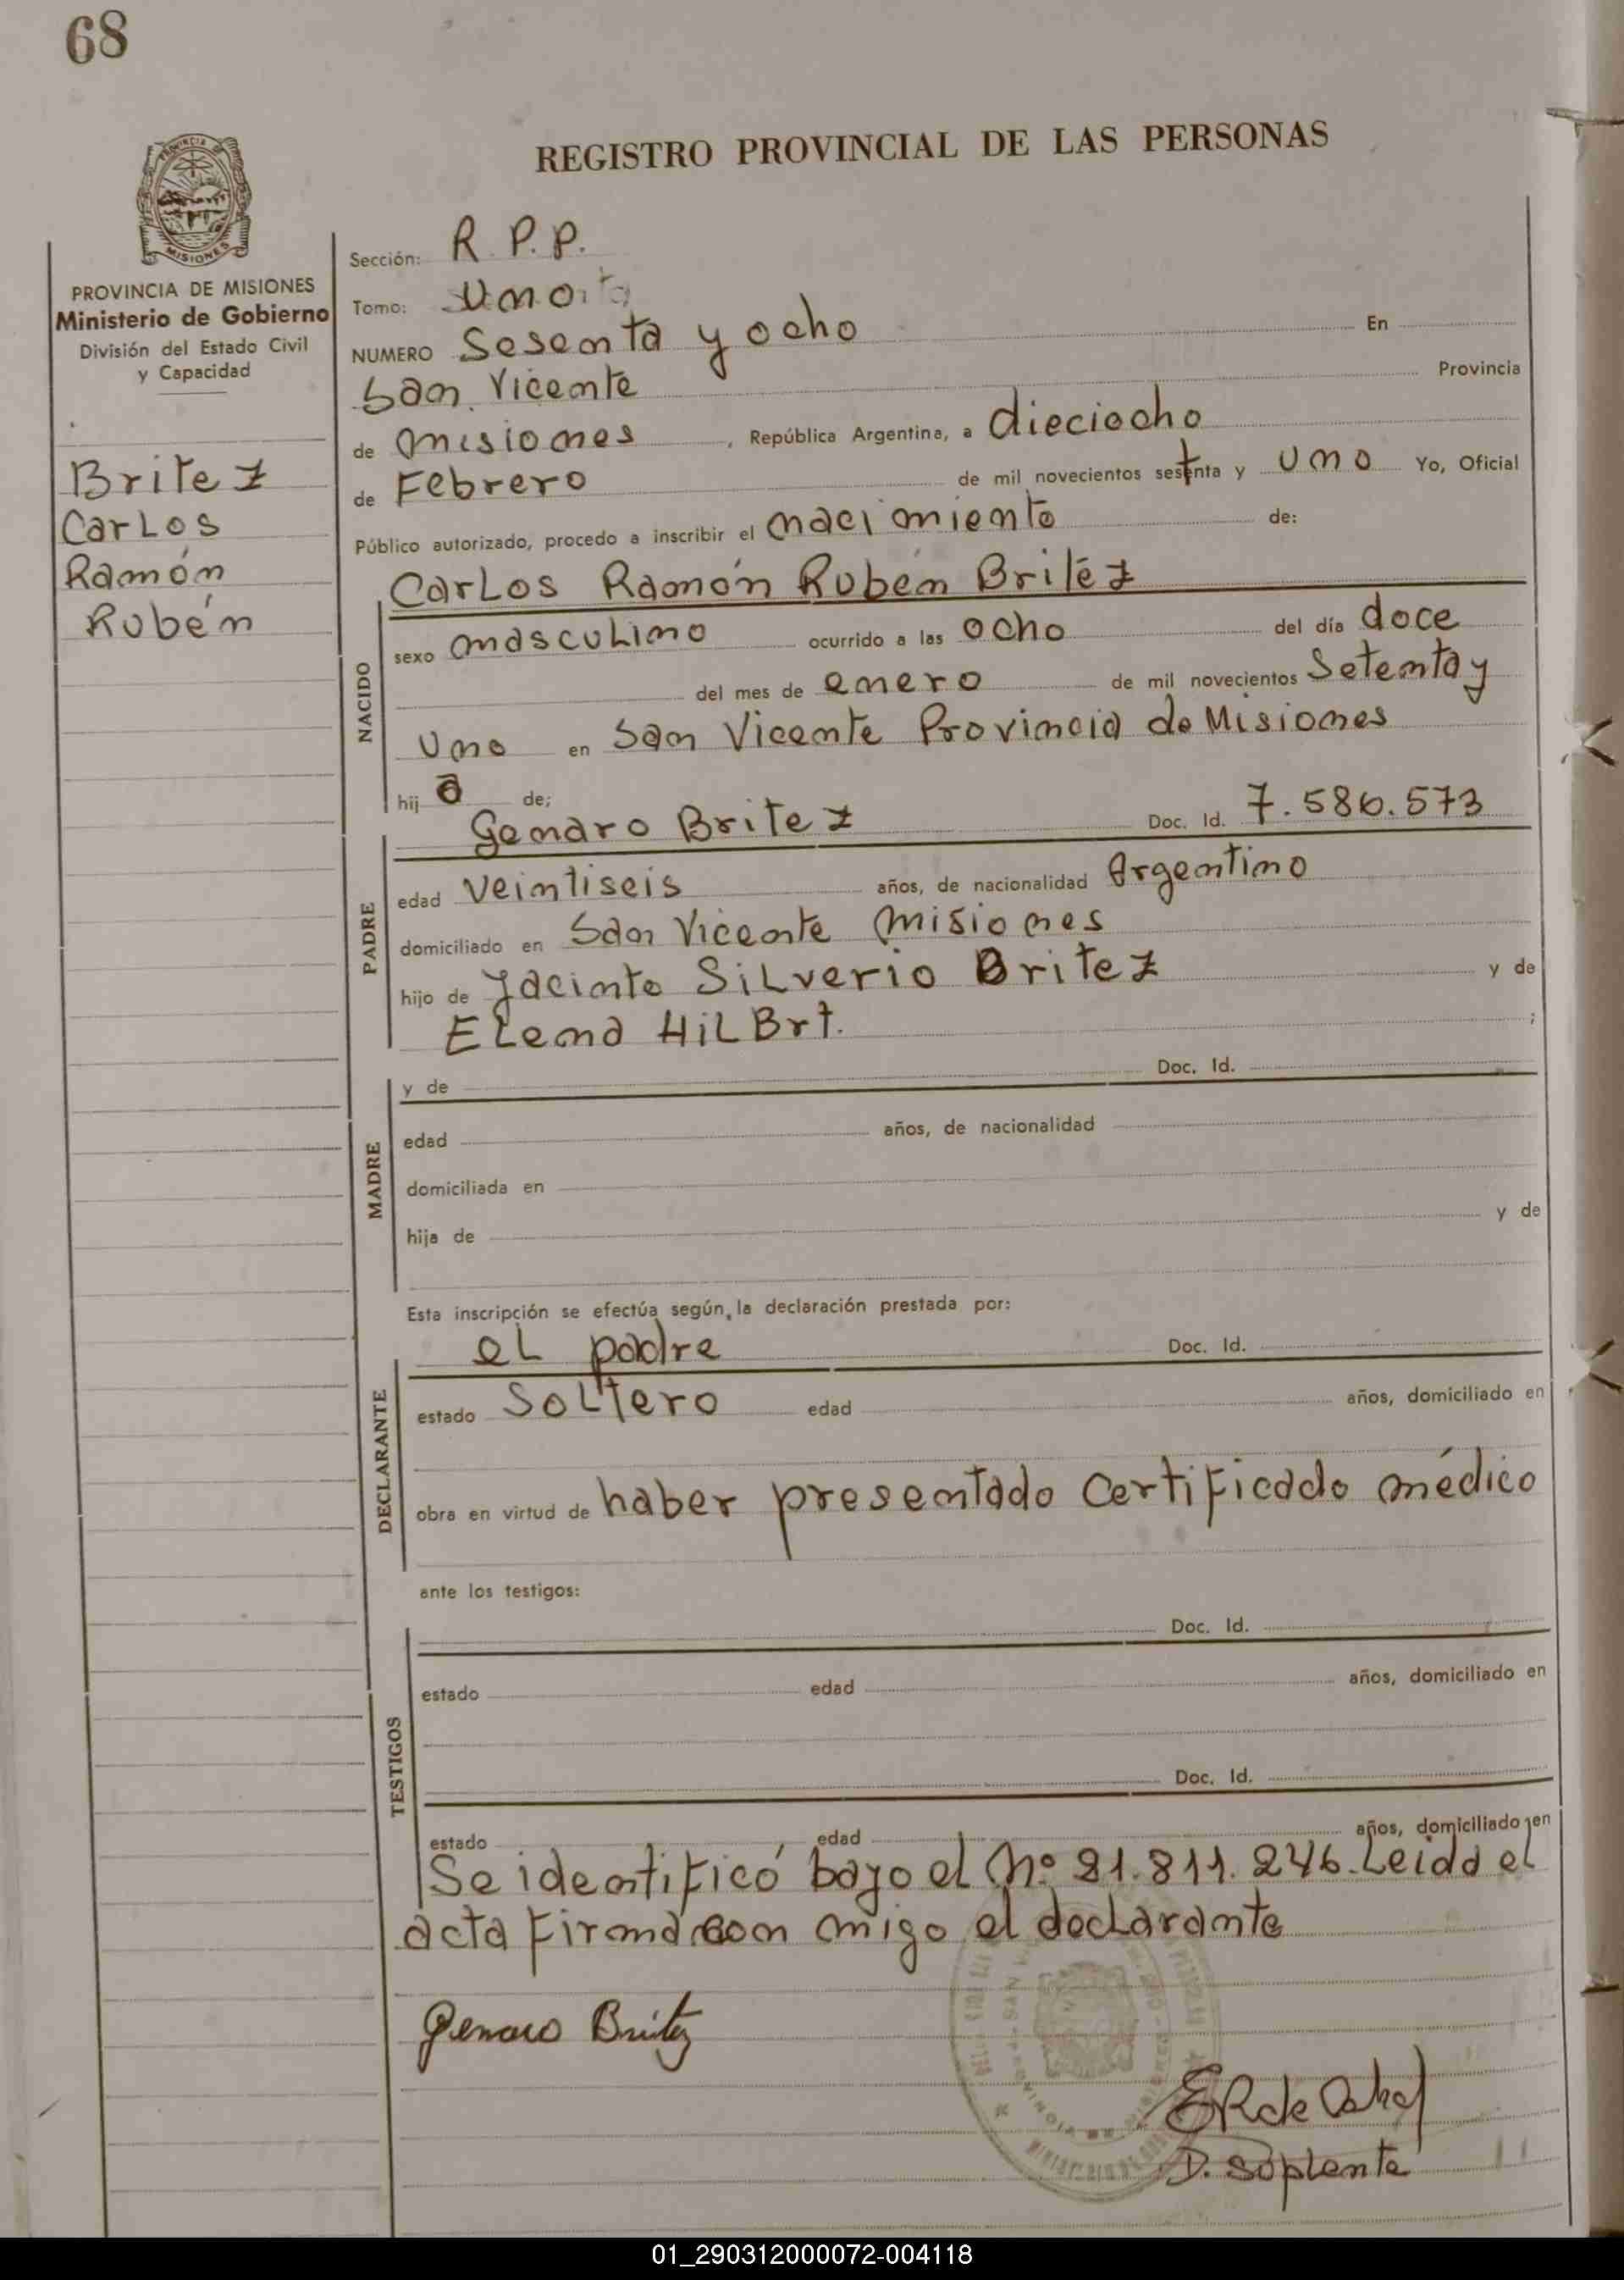 68
REGISTRO PROVINCIAL DE LAS PERSONAS
PROVINCIA DE
MISIONES
PROVINCIA DE MISIONES
Ministerio de Gobierno
División del Estado Civil
y Capacidad
Britez
Carlos
Ramón
Rubén
Sección: R. P. P.
Tomo: Uno
NUMERO Sesenta y ocho En
San Vicente Provincia
de Misiones, República Argentina, a dieciocho
de Febrero de mil novecientos setenta y uno Yo, Oficial
Público autorizado, procedo a inscribir el nacimiento de:
Carlos Ramón Rubén Britez
NACIDO
sexo masculino ocurrido a las ocho del día doce
del mes de enero de mil novecientos Setenta y
Uno en San Vicente Provincia de Misiones
hijo de;
Genaro Britez Doc. Id. 7.586.573
PADRE
edad veintiseis años, de nacionalidad Argentino
domiciliado en San Vicente Misiones
hijo de Jacinto Silverio Britez y de
Elena HilBrt. ;
MADRE
y de Doc. Id.
edad años, de nacionalidad
domiciliada en
hija de y de
Esta inscripción se efectúa según, la declaración prestada por:
el padre Doc. Id.
DECLARANTE
estado Soltero edad años, domiciliado en
obra en virtud de haber presentado certificado médico
ante los testigos:
Doc. Id.
TESTIGOS
estado edad años, domiciliado en
Doc. Id.
estado edad años, domiciliado en
Se identificó bajo el Nº 21.811.246. Leida el
acta firma con migo el declarante
Genaro Britez
D. Suplente
01_290312000072-004118